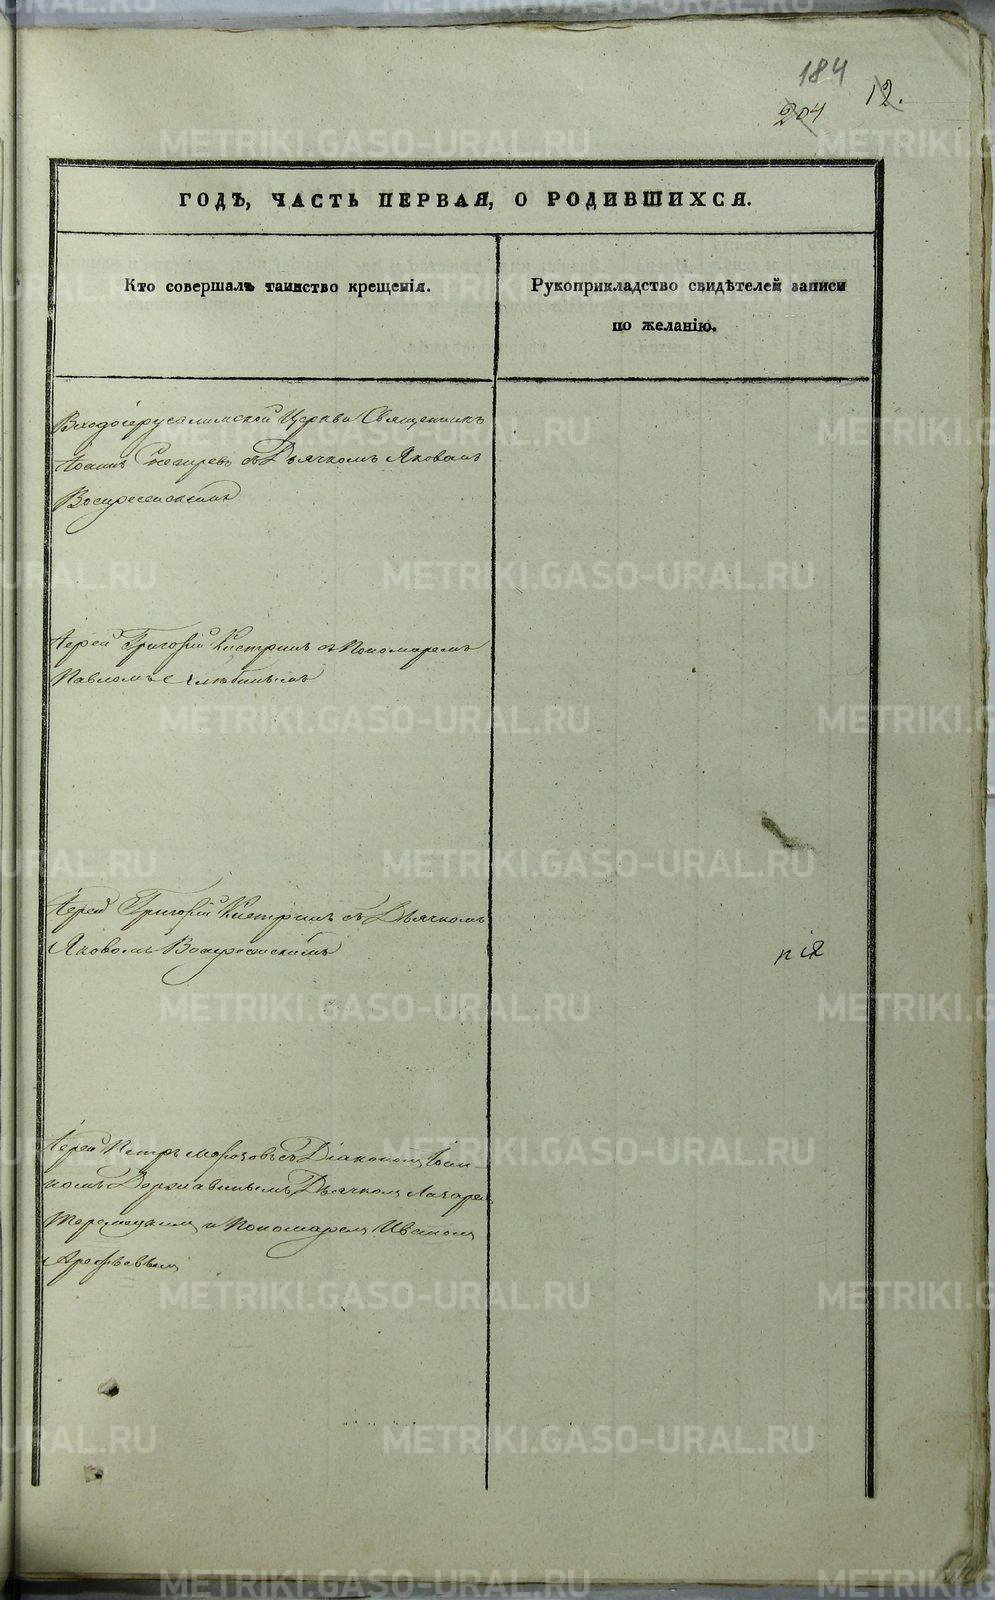 184
204 12.
ГОДЪ, ЧАСТЬ ПЕРВАЯ, О РОДИВШИХСЯ.
Кто совершалъ таинство крещенія.
Рукоприкладство свидѣтелей записи
по желанію.
Входоіерусалимской Церкви Священникъ
Іоаннъ съ Дьячкомъ Яковомъ
Воскресенскимъ
Іерей Григорій Кистринъ съ Пономаремъ
Павломъ
Іерей Григорій Кистринъ съ Дьячкомъ
Яковомъ Воскресенскимъ
нія
Іерей Петръ Морозовъ съ Діакономъ
Державинымъ, Дьячкомъ Лазаремъ
и Пономаремъ Иваномъ
Арефьевымъ
METRIKI.GASO-URAL.RU